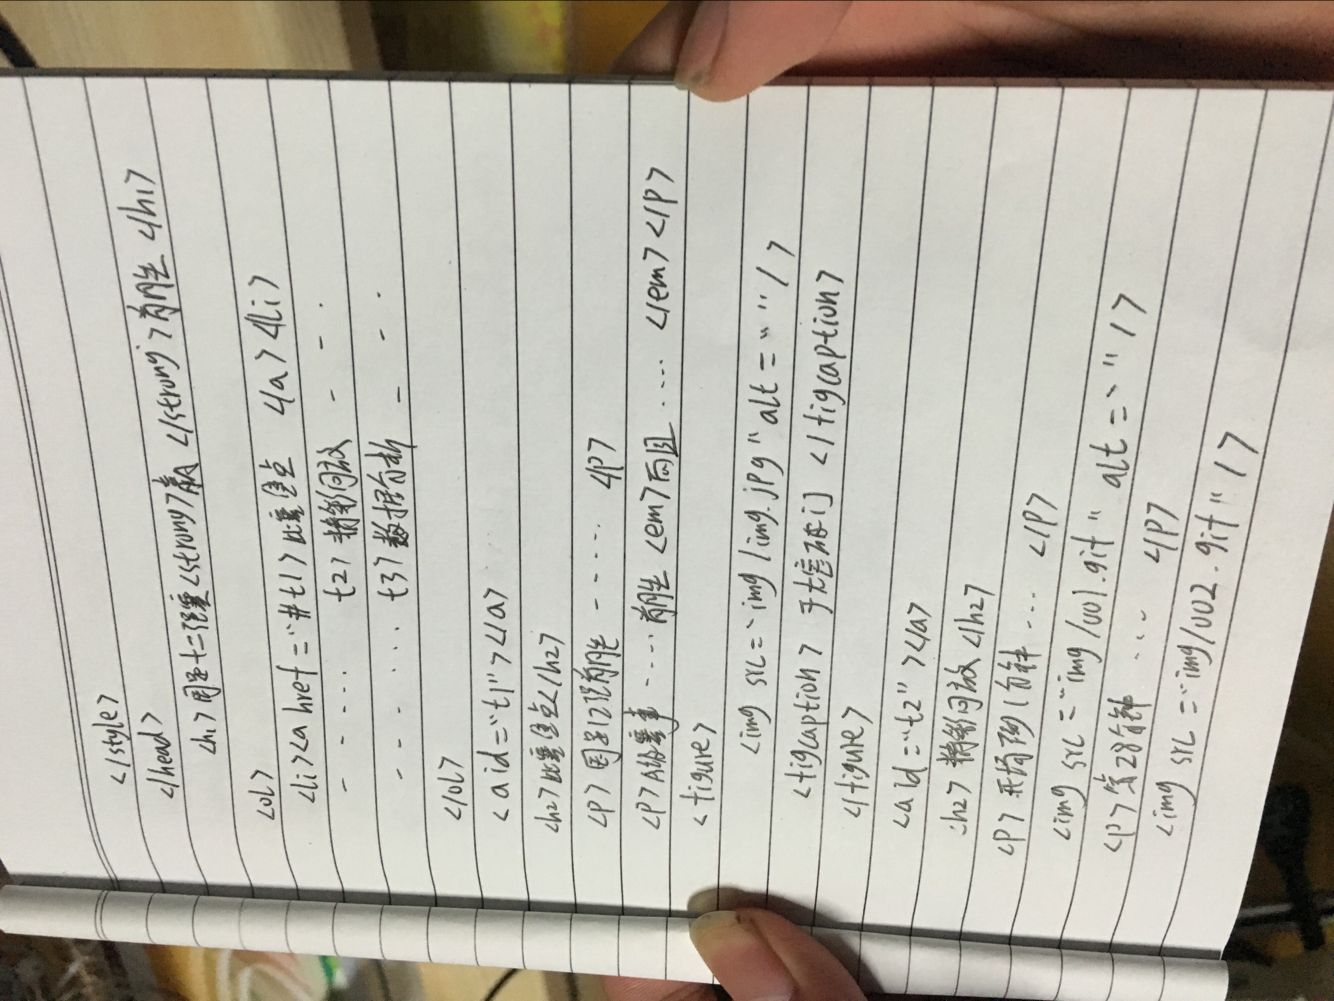 </style>
</head>
<h1>国足十二强赛<strong>赢</strong>首胜</h1>
<ol>
<li><a href="#t1>比赛焦点 </a></li>
- - · · · · t2> 精彩回放 - - - ·
- - - - · · · t3> 数据分析 - - - ·
</ol>
<a id="t1"></a>
<h2>比赛焦点</h2>
<p>国足12强首胜 - - - - - </p>
<p>A级赛事 - - · · · 首胜 <em>而且 · · · · </em></p>
<figure>
<img src="img/img.jpg" alt=""/>
<figcaption> 于大宝破门 </figcaption>
</figure>
<a id="t2"></a>
<h2>精彩回放</h2>
<p>开场到1分钟 · · · </p>
<img src="img/001.gif" alt=""/>
<p>第28分钟 · · · </p>
<img src="img/002.gif"/>